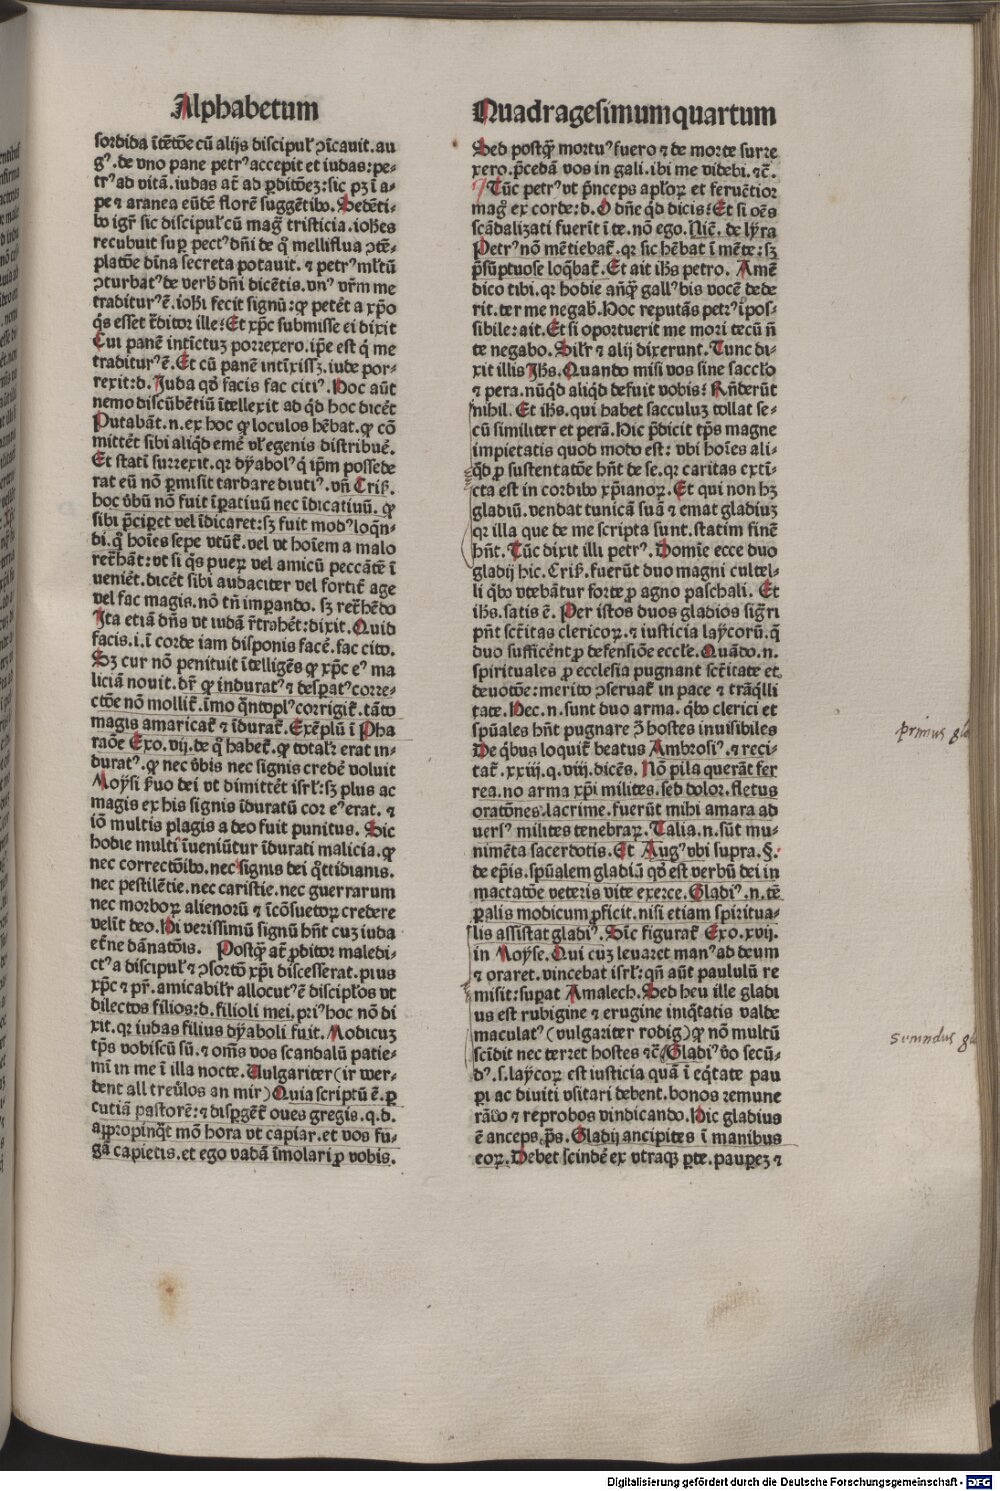 Alphabetum
sordida ĩtẽtõe cũ alijs discipul' ↄ̃icauit. au
gꝰ. de vno pane petrꝰ accepit et iudas: pe-
trꝰ ad vitã. iudas at̃ ad ꝑditõeȝ: sic pȝ ĩ a-
pe ⁊ aranea eũdẽ florẽ suggẽtibꝰ. Sedẽti-
bꝰ igr̃ sic discipul' cũ mag̃ tristicia. ioh̃es
recubuit suꝑ pectꝰ dñi de q̊ melliflua ↄtẽ-
platõe diĩna secreta potauit. ⁊ petrꝰ ml̃tũ
ↄturbatꝰ de verb̃ dñi dicẽtis. vnꝰ vr̃m me
traditurꝰ ẽ. ioh̃i fecit signũ: ꝙ petẽt a xp̃o
q̃s esset t̃ditor ille? Et xp̃c submisse ei dixit
Cui panẽ intĩctuȝ porrexero. ip̃e est q̃ me
traditurꝰ ẽ. Et cũ panẽ intĩxissȝ. iude por-
rexit: d. Juda qđ facis fac citiꝰ. Hoc aũt
nemo discũbẽtiũ ĩtellexit ad q̃d hoc dicẽt
Putabãt. n. ex hoc ꝙ loculos hẽbat. ꝙ cõ
mittẽt sibi aliq̃d emẽ vl̃ egenis distribuẽ.
Et statĩ surrexit. qr dyabolꝰ q̃ ip̃m possede
rat eũ nõ ꝑmisit tardare diutiꝰ. vñ Criß.
hoc v̓bũ nõ fuit ĩꝑatiuũ nec ĩdicatiuũ. ꝙ
sibi p̃ciꝑet vel ĩdicaret: sȝ fuit modꝰ loq̃n-
di. q̃ hoĩes sepe vtũt̃. vel vt hoĩem a malo
ret̃hãt: vt si q̃s pueꝝ vel amicũ peccãtẽ ĩ
ueniẽt. dicẽt sibi audaciter vel fortit̃ age
vel fac magis. nõ tñ imꝑando. sȝ ret̃hẽdo
Jta etiã dñs vt iudã r̃trahẽt: dixit. Quid
facis. i. ĩ corde iam disponis facẽ. fac cito.
Sȝ cur nõ penituit ĩtelligẽs ꝙ xp̃c eꝰ ma
liciã nouit. dr̃ ꝙ induratꝰ ⁊ desꝑatꝰ corre-
ctõe nõ mollit̃. ĩmo q̃ntoplꝰ corrigit̃. tãto
magis amaricat̃ ⁊ ĩdurat̃. Exẽplũ ĩ Pha
raõe Exo. vij. de q̊ habet̃. ꝙ total' erat in-
duratꝰ. ꝙ nec v̓bis nec signis credẽ voluit
Moysi ẜuo dei vt dimittẽt isrl': sȝ plus ac
magis ex his signis ĩduratũ cor eꝰ erat. ⁊
iõ multis plagis a deo fuit punitus. Sic
hodie multi ĩueniũtur ĩdurati malicia. ꝙ
nec correctõibꝰ. nec signis dei q̊ttidianis.
nec pestilẽtie. nec caristie. nec guerrarum
nec morboꝝ alienorũ ⁊ ĩcõsuetoꝝ credere
velĩt deo. Hi verissimũ signũ hñt cuȝ iuda
et̃ne dãnatõis. Postq̃ at̃ ꝓditor maledi-
ctꝰ a discipul' ⁊ ↄsortõ xp̃i discesserat. pius
xp̃c ⁊ pr̃. amicabilr̃ allocutꝰ ẽ discipl̃os vt
dilectos filios: d. filioli mei. priꝰ hoc nõ di
xit. qr iudas filius dyaboli fuit. Modicuȝ
tp̃s vobiscũ sũ. ⁊ om̃s vos scandalũ patie-
mĩ in me ĩ illa nocte. Uulgariter (ir wer-
dent all treũlos an mir) Quia scriptũ ẽ. ꝑ
cutiã pastorẽ: ⁊ disꝑgẽt̃ oues gregis. q. d.
appropinq̃t mõ hora vt capiar. et vos fu-
gã capietis. et ego vadã ĩmolari ꝑ vobis.
Quadragesimumquartum
Sed postq̃ mortuꝰ fuero ⁊ de morte surre
xero. p̃cedã vos in gali. ibi me videbi. ⁊c̃.
Tũc petrꝰ vt p̃nceps apl̃oꝝ et feruẽtior
mag̃ ex corde: d. O dñe q̃d dicis? Et si oẽs
scãdalizati fuerĩt ĩ te. nõ ego. Nic̃. de lyra
Petrꝰ nõ mẽtiebat̃. qr sic hẽbat ĩ mẽte: sȝ
p̃suptuose loq̃bat̃. Et ait ih̃s petro. Amẽ
dico tibi. qr hodie añq̃ gallꝰ bis vocẽ dede
rit. ter me negab̃. Hoc reputãs petrꝰ ĩpos-
sibile: ait. Et si oportuerit me mori tecũ ñ
te negabo. Silr̃ ⁊ alij dixerunt. Tunc di-
xit illis Jh̃s. Quando misi vos sine saccl̃o
⁊ pera. nũqd aliq̃d defuit vobis? Rñderũt
nihil. Et ih̃s. qui habet sacculuȝ tollat se-
cũ similiter et perã. Hic p̃dicit tp̃s magne
impietatis quod modo est: vbi hoĩes ali-
q̃d ꝑ sustentatõe hñt de se. qr caritas extĩ-
cta est in cordibꝰ xp̃ianoꝝ. Et qui non hȝ
gladiũ. vendat tunicã suã ⁊ emat gladiuȝ
qr illa que de me scripta sunt. statim finẽ
hñt. Tũc dixit illi petrꝰ. Domĩe ecce duo
gladij hic. Criß. fuerũt duo magni cultel-
li q̃bꝰ vtebãtur forte ꝑ agno paschali. Et
ih̃s. satis ẽ. Per istos duos gladios sigr̃i
pñt sct̃itas clericoꝝ. ⁊ iusticia laycorũ. q̃
duo sufficẽnt ꝑ defensiõe eccl̃e. Quãdo. n.
spirituales ꝑ ecclesia pugnant sct̃itate et
deuotõe: merito ↄseruat̃ in pace ⁊ trãq̃lli
tate. Hec. n. sunt duo arma. q̃bꝰ clerici et
sp̃uales hñt pugnare ↄ̃ hostes inuisibiles
De q̃bus loquit̃ beatus Ambrosiꝰ. ⁊ reci-
tat̃. xxiij. q. viij. dicẽs. Nõ pila querãt fer
rea. no arma xp̃i milites. sed dolor. fletus
oratõnes. lacrime. fuerũt mihi amara ad
uersꝰ milites tenebraꝝ. Talia. n. sũt mu-
nimẽta sacerdotis. Et Augꝰ vbi supra. §.
de ep̃is. sp̃ualem gladiũ qđ est verbũ dei in
mactatõe veteris vite exerce. Gladiꝰ. n. tẽ
ꝑalis modicum ꝓficit. nisi etiam spiritua-
lis assistat gladiꝰ. Sic figurat̃ Exo. xvij.
in Moyse. Qui cuȝ leuaret manꝰ ad deum
⁊ oraret. vincebat isrl': qñ aũt paululũ re
misit: suꝑat Amalech. Sed heu ille gladi
us est rubigine ⁊ erugine iniq̃tatis valde
maculatꝰ (vulgariter rodig) ꝙ nõ multũ
scĩdit nec terret hostes ⁊c̃ Gladiꝰ v̓o secũ-
dꝰ. s. laycoꝝ est iusticia quã ĩ eq̃tate pau
ꝑi ac diuiti vsitari debent. bonos remune
rãdo ⁊ reprobos vindicando. Hic gladius
ẽ anceps. p̃s. Gladij ancipites ĩ manibus
eoꝝ. Debet scindẽ ex vtraqꝫ ꝑte. pauꝑeȝ ⁊
primus gla
secundus gla
Digitalisierung gefördert durch die Deutsche Forschungsgemeinschaft - DFG